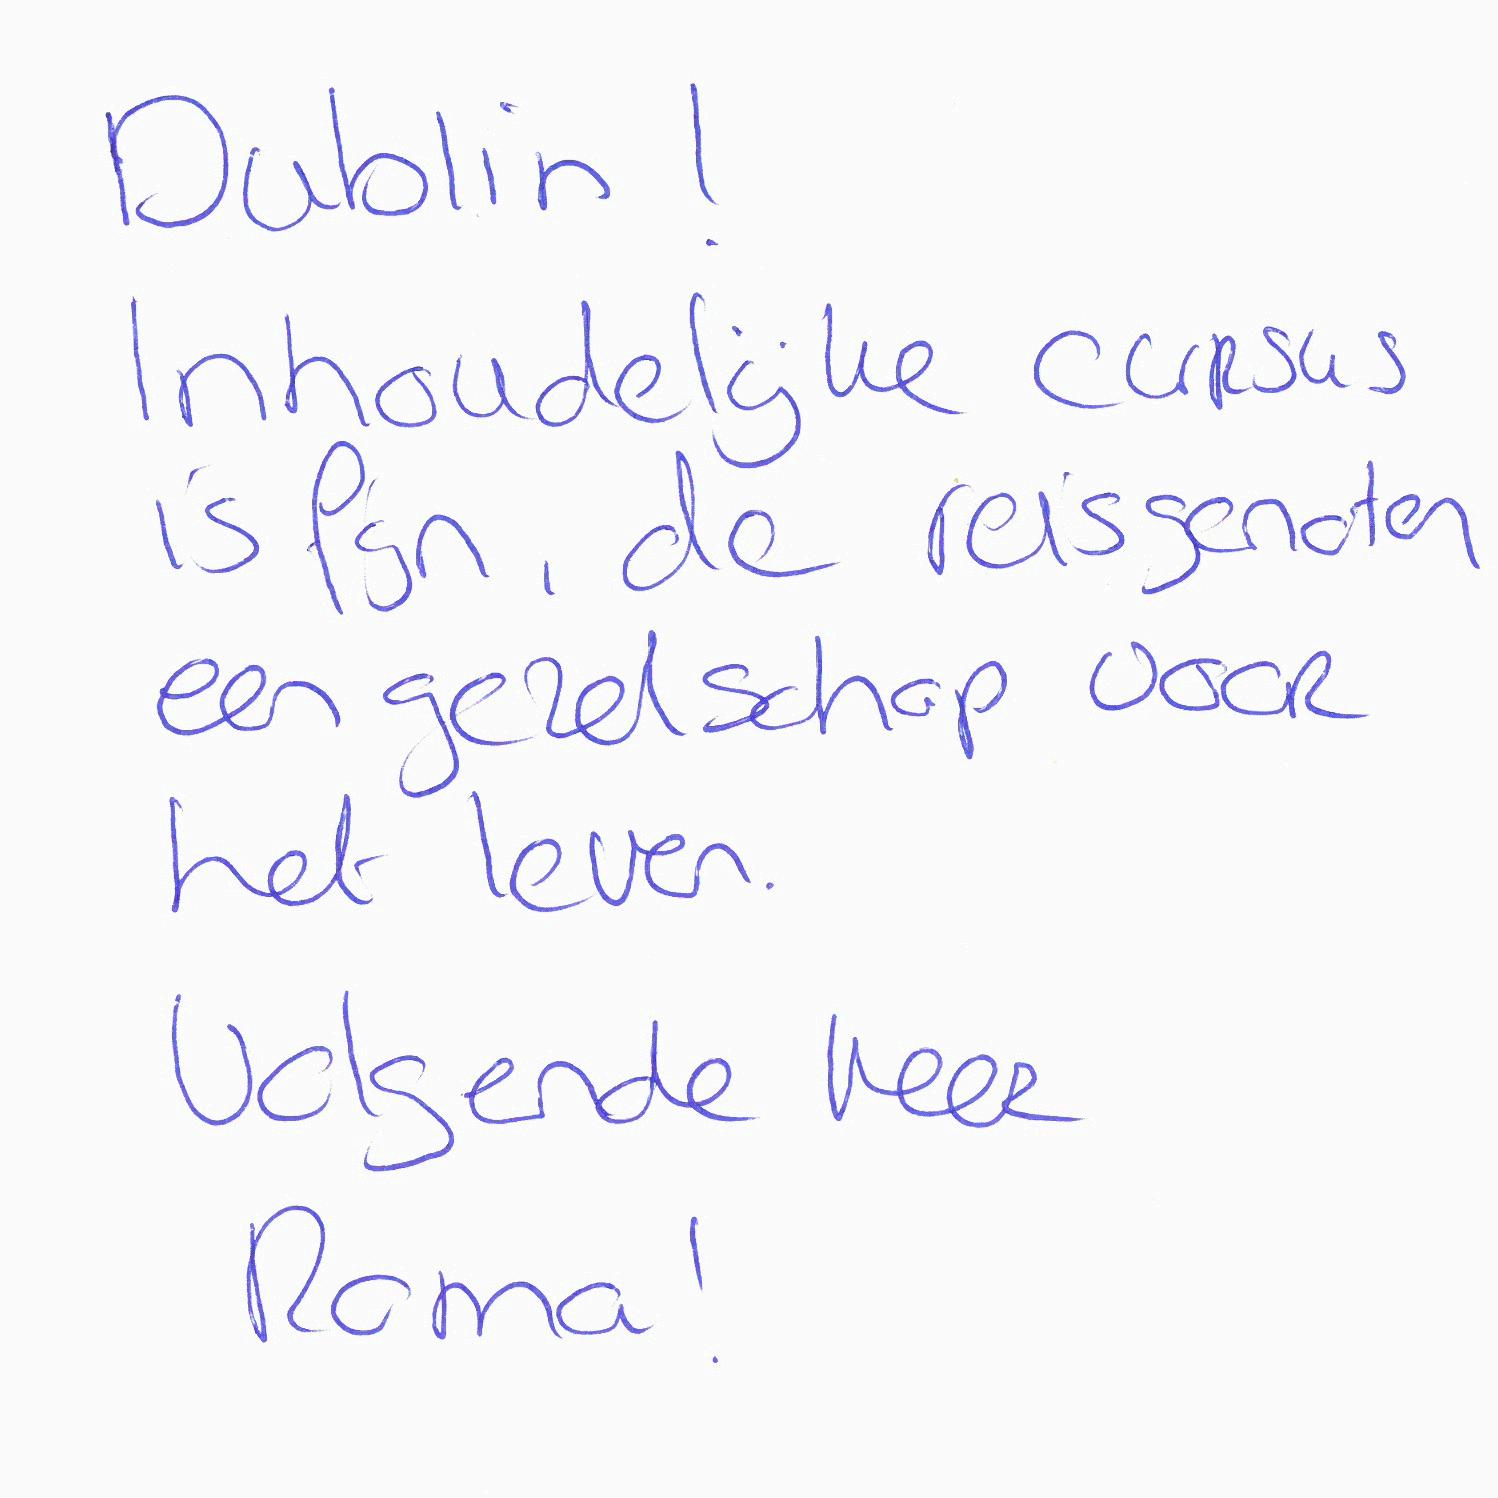 Dublin!
Inhoudelijke cursus
is fijn, de reisgenoten
een gezelschap voor
het leven.
Volgende keer
Roma!